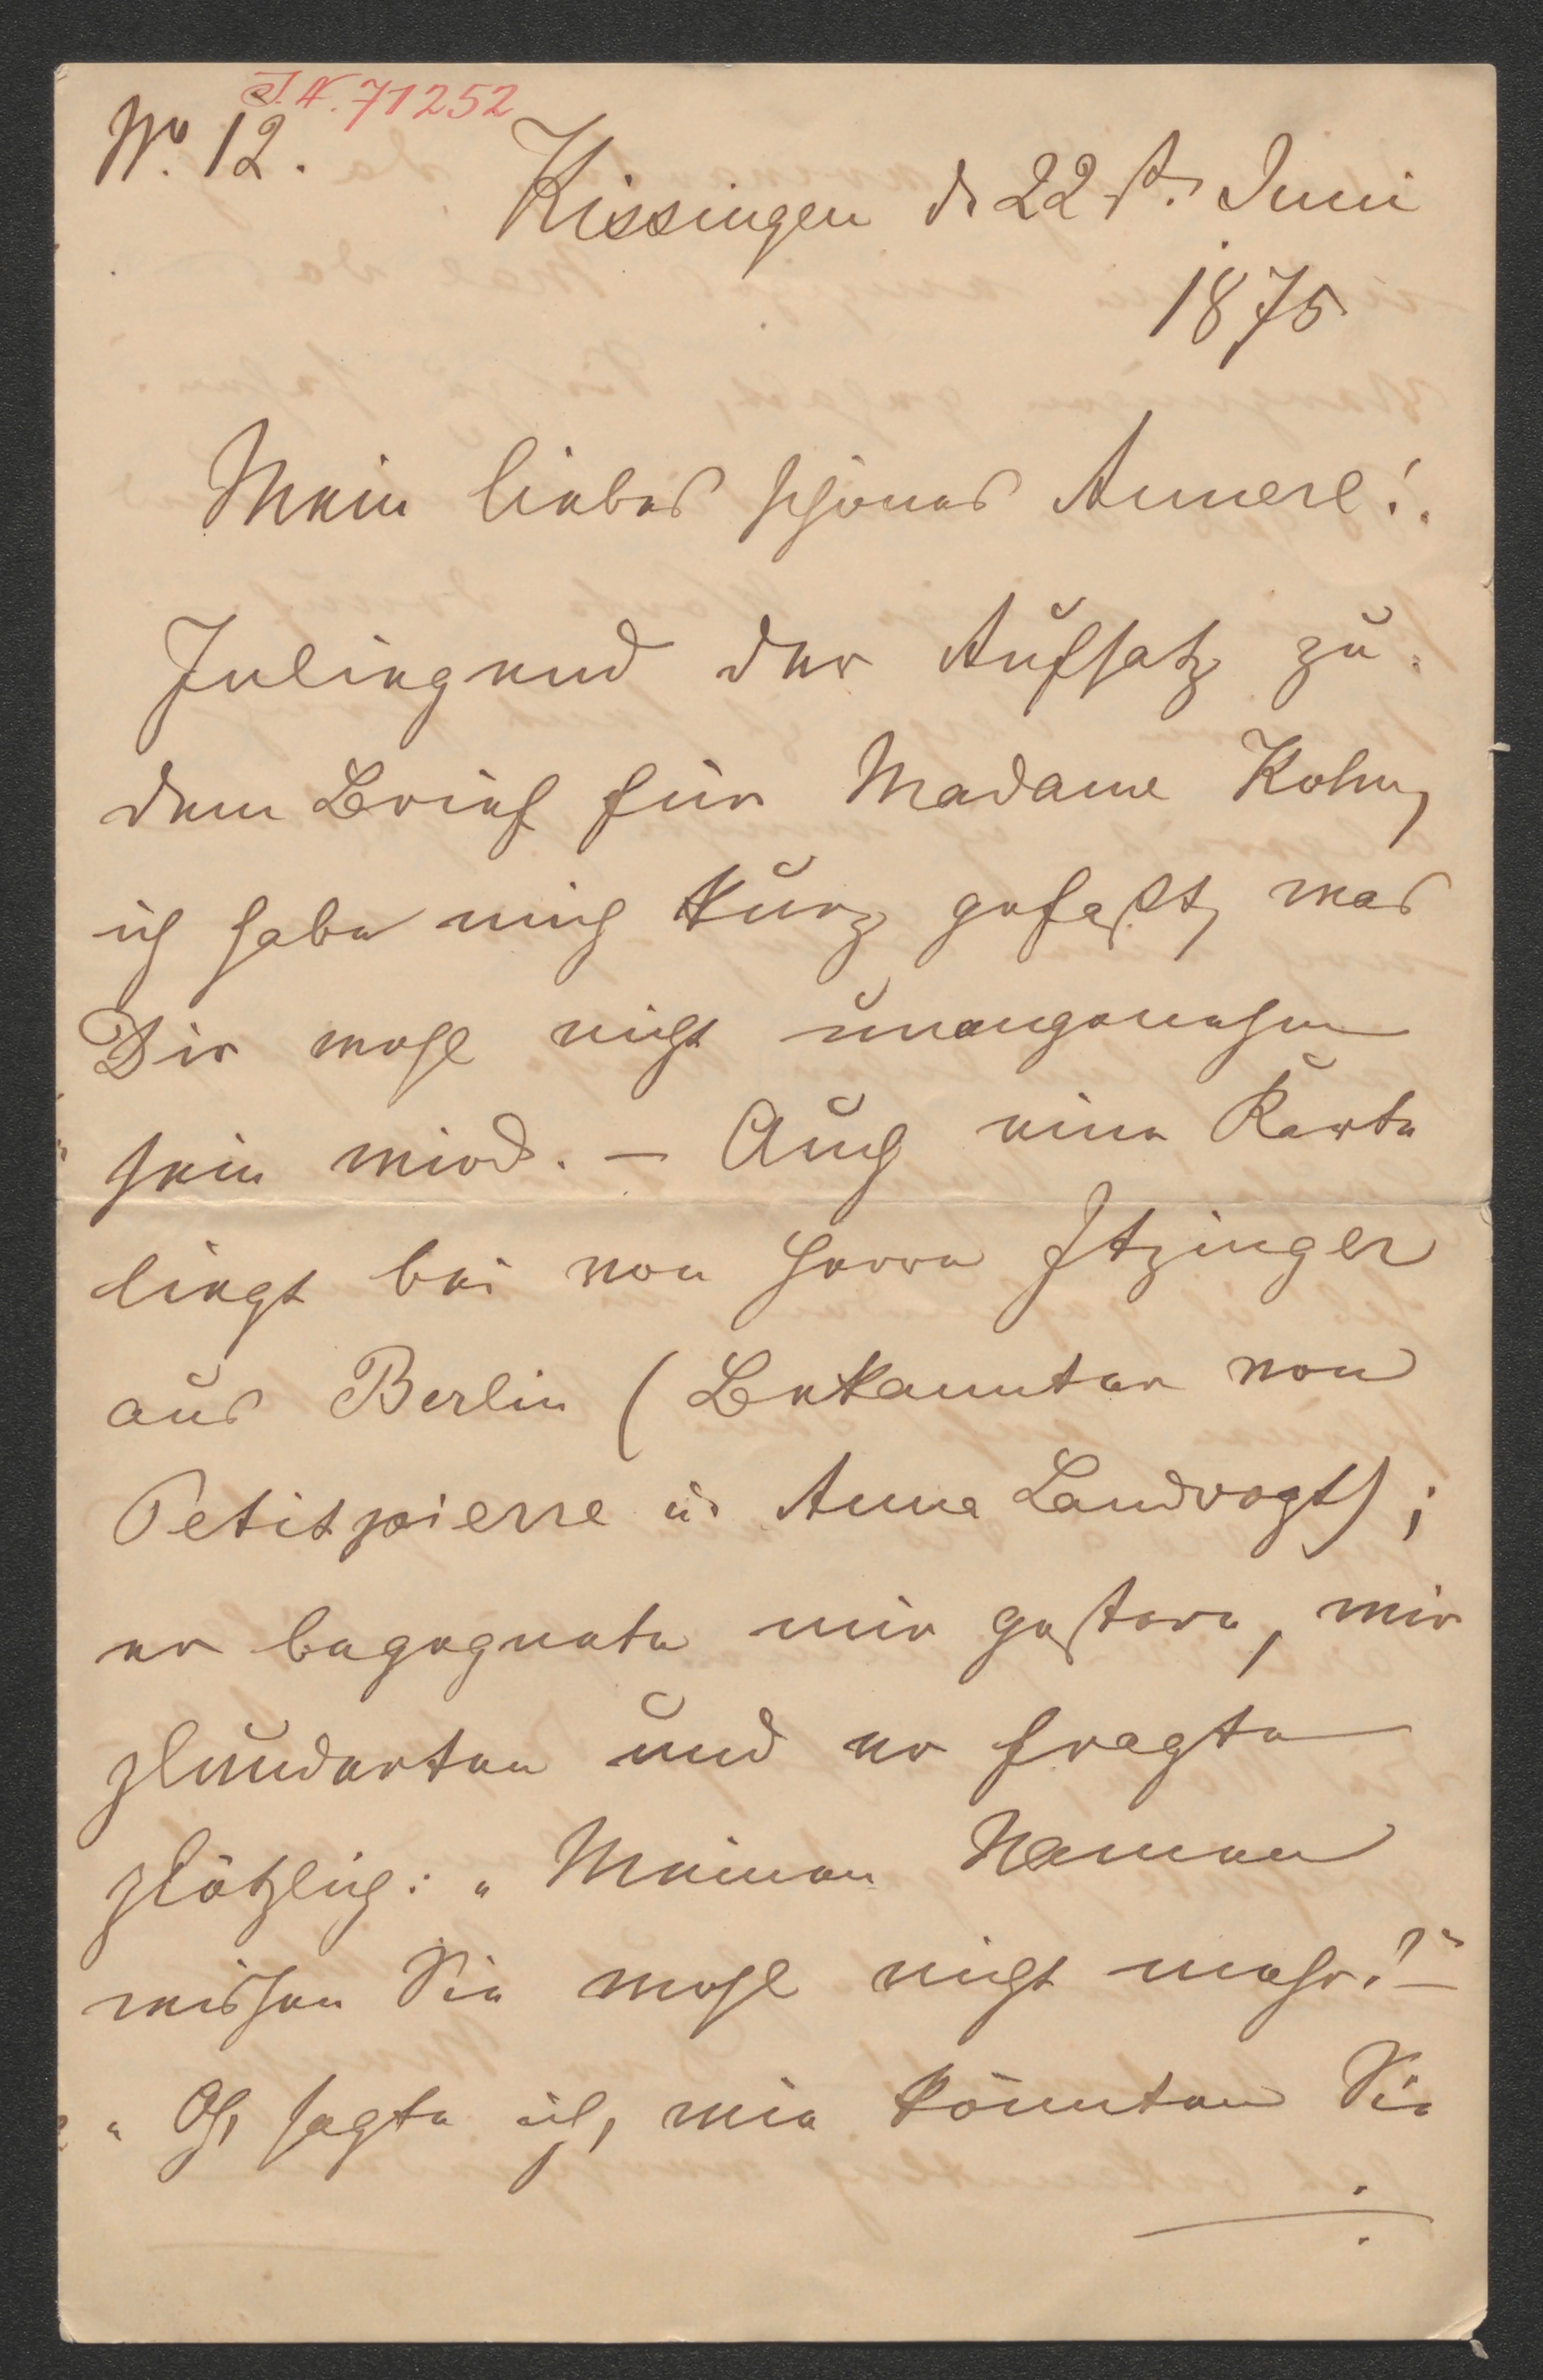 I.N. 71252
No. 12.
Kissingen d. 22 st. Juni
1875
Mein liebes schönes Annerl!
Inliegend der Aufsatz zu
dem Brief für Madame Kohn,
ich habe mich kurz gefaßt, was
Dir wohl nicht unangenehm
sein wird. – Auch eine Karte
liegt bei von Herrn Itzinger
aus Berlin (Bekannter von
Petitpierre u. Anna Landvogt);
er begegnete mir gestern, wir
plauderten und er fragte
plötzlich: „Meinen Namen
wissen Sie wohl nicht mehr?" –
„Oh, sagte ich, wie könnten Sie
./.